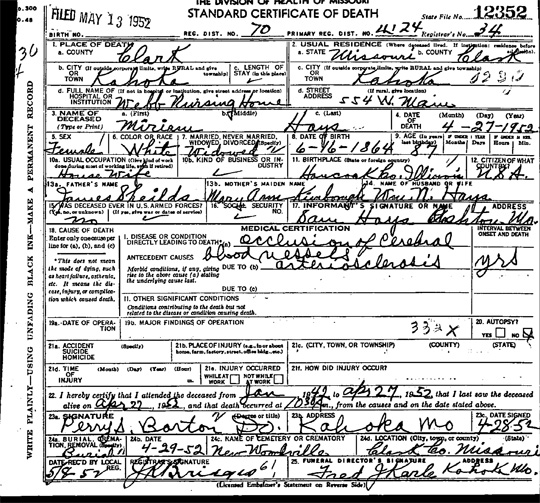 THE DIVISION OF HEALTH OF MISSOURI
FILED MAY 13 1952 STANDARD CERTIFICATE OF DEATH State File No. 12352
BIRTH NO. REG. DIST. NO. 70 PRIMARY REG. DIST. NO. 4124 Registrar's No. 34
1. PLACE OF DEATH 2. USUAL RESIDENCE (Where deceased lived. If institution: residence before
a. COUNTY Clark a. STATE Missouri b. COUNTY Clark
b. CITY (If outside corporate limits, write RURAL and give township) OR TOWN Kahoka c. LENGTH OF STAY (in this place) c. CITY OR TOWN Kahoka
d. FULL NAME OF HOSPITAL OR INSTITUTION (If not in hospital or institution, give street address or location) Webb Nursing Home d. STREET ADDRESS (If rural, give location) 554 W. Main
3. NAME OF DECEASED (Type or Print) a. (First) Miriam b. (Middle) c. (Last) Hays 4. DATE OF DEATH (Month) (Day) (Year) 4-27-1952
5. SEX Female 6. COLOR OR RACE White 7. MARRIED, NEVER MARRIED, WIDOWED, DIVORCED Widowed 8. DATE OF BIRTH 6-16-1864 9. AGE 87
10a. USUAL OCCUPATION House Wife 10b. KIND OF BUSINESS OR INDUSTRY 11. BIRTHPLACE (State or foreign country) Hancock Co. Illinois 12. CITIZEN OF WHAT COUNTRY? U.S.A.
13a. FATHER'S NAME James Sheilds 13b. MOTHER'S MAIDEN NAME Mary Ann 14. NAME OF HUSBAND OR WIFE Wm. N. Hays
15. WAS DECEASED EVER IN U.S. ARMED FORCES? no 16. SOCIAL SECURITY NO. 17. INFORMANT'S SIGNATURE OR NAME Hays ADDRESS Ashton, Mo.
18. CAUSE OF DEATH MEDICAL CERTIFICATION INTERVAL BETWEEN ONSET AND DEATH
Enter only one cause per line for (a), (b), and (c) I. DISEASE OR CONDITION DIRECTLY LEADING TO DEATH* (a) occlusion of Cerebral
ANTECEDENT CAUSES blood vessels
*This does not mean the mode of dying, such as heart failure, asthenia, etc. It means the disease, injury, or complication which caused death. Morbid conditions, if any, giving rise to the above cause (a) stating the underlying cause last. DUE TO (b) arteriosclerosis yrs
DUE TO (c)
II. OTHER SIGNIFICANT CONDITIONS
Conditions contributing to the death but not related to the disease or condition causing death.
19a. DATE OF OPERATION 19b. MAJOR FINDINGS OF OPERATION 332X 20. AUTOPSY? YES NO
21a. ACCIDENT SUICIDE HOMICIDE (Specify) 21b. PLACE OF INJURY (e.g., in or about home, farm, factory, street, office bldg., etc.) 21c. (CITY, TOWN, OR TOWNSHIP) (COUNTY) (STATE)
21d. TIME OF INJURY (Month) (Day) (Year) (Hour) 21e. INJURY OCCURRED WHILE AT WORK NOT WHILE AT WORK 21f. HOW DID INJURY OCCUR?
22. I hereby certify that I attended the deceased from Jan to Apr 27, 1952, that I last saw the deceased
alive on Apr 27, 1952, and that death occurred at m., from the causes and on the date stated above.
23a. SIGNATURE Perry S. Barton Do. (Degree or title) 23b. ADDRESS Kahoka Mo 23c. DATE SIGNED 4-28-52
24a. BURIAL, CREMATION, REMOVAL (Specify) Burial 24b. DATE 4-29-52 24c. NAME OF CEMETERY OR CREMATORY New 24d. LOCATION (City, town, or county) (State) Clark Co. Missouri
DATE REC'D BY LOCAL REG. REGISTRAR'S SIGNATURE 25. FUNERAL DIRECTOR'S SIGNATURE ADDRESS
(Licensed Embalmer's Statement on Reverse Side)
WRITE PLAINLY—USING UNFADING BLACK INK—MAKE A PERMANENT RECORD